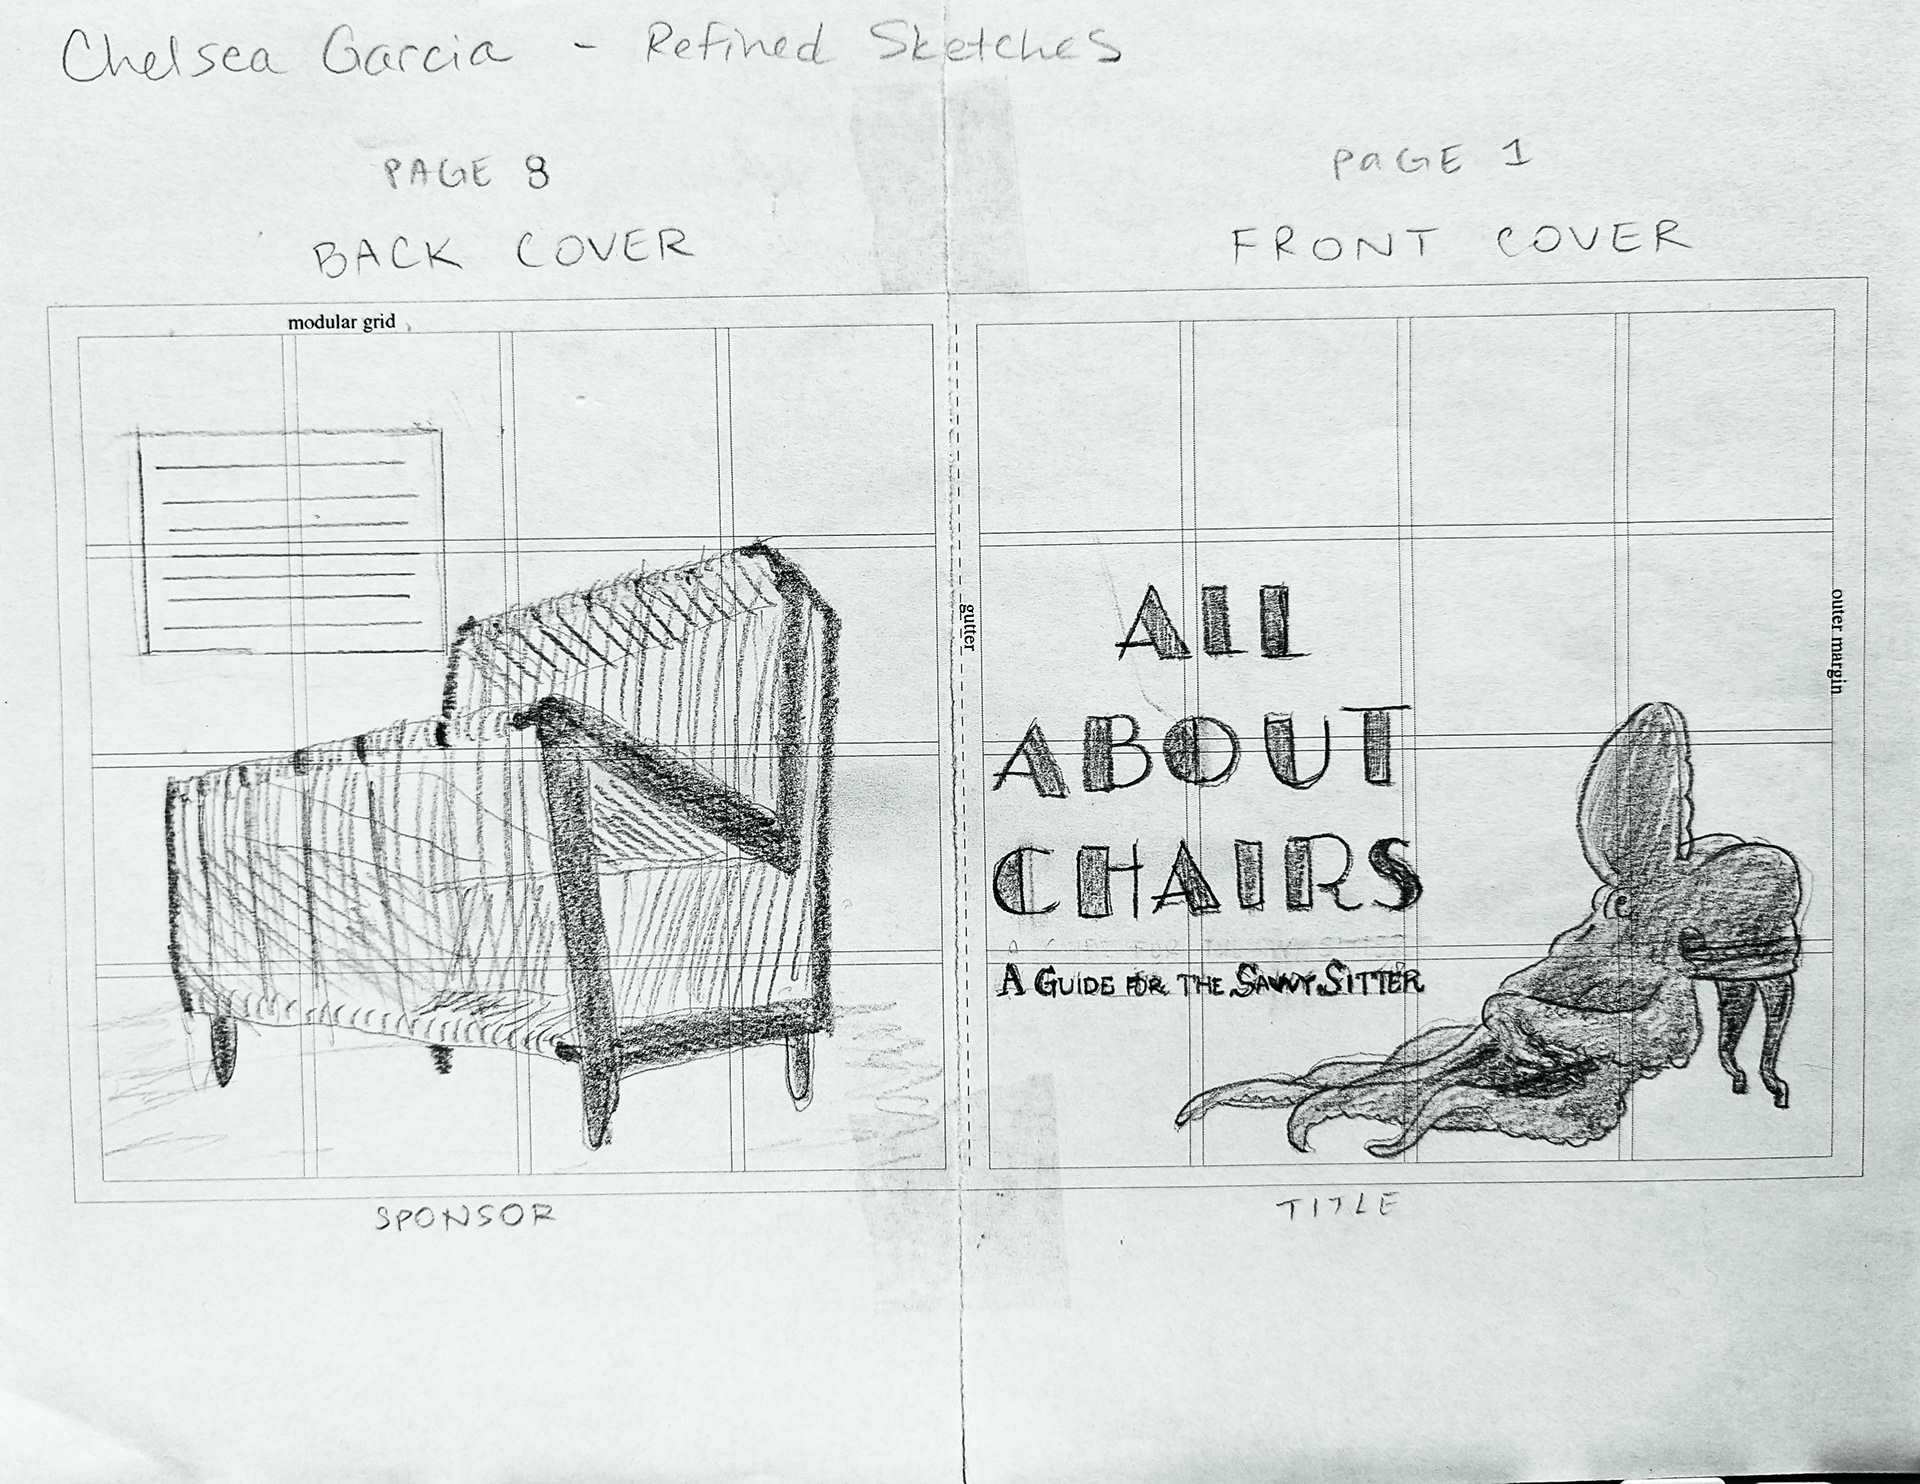 Chelsea Garcia - Refined Sketches
PAGE 8
BACK COVER
PaGE 1
FRONT COVER
modular grid
gutter
outer margin
ALL
ABOUT
CHAIRS
A GUIDE FOR THE SAVVY SITTER
SPONSOR
TITLE